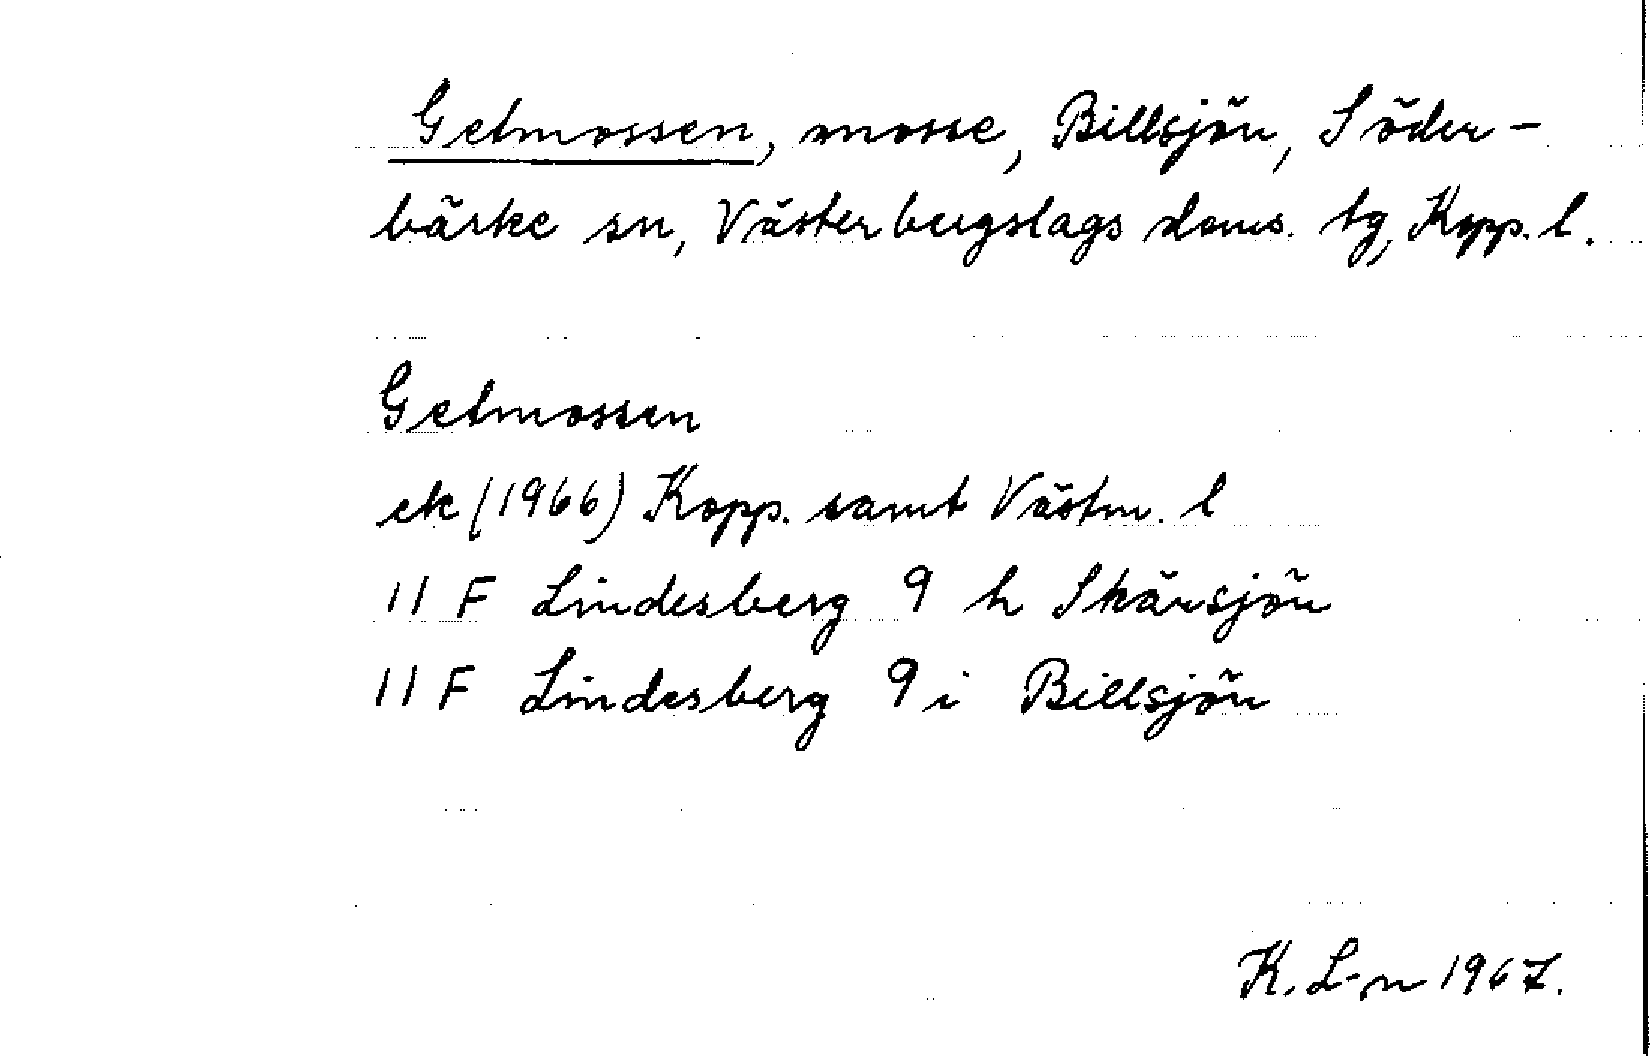 Getmossen, mosse, Billsjön, Söder-
bärke sn, Västerbergslags doms. tg, Kopp. l.
Getmossen
ek (1966) Kopp. samt Västm. l
11 F Lindesberg 9 h Skärsjön
11 F Lindesberg 9 i Billsjön
K. L-n 1967.